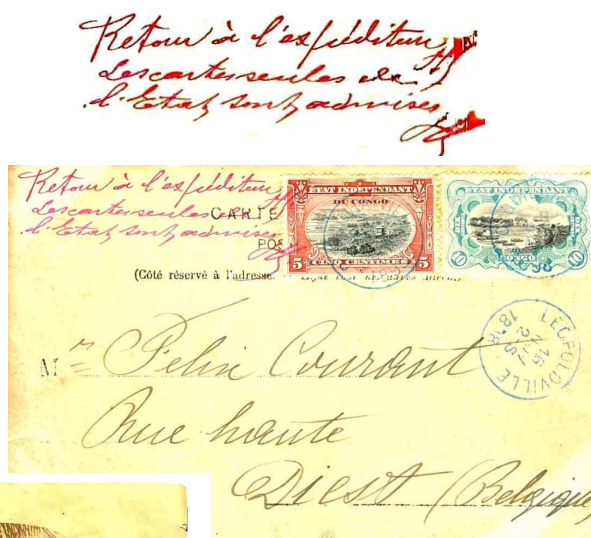 Retour à l'expéditeur
Les cartes seules de
l'Etat sont admises
Retour à l'expéditeur
Les cartes seules de
l'Etat sont admises
CARTE
POS
(Côté réservé à l'adresse.
ETAT INDEPENDANT
DU CONGO
5 CINQ CENTIMES 5
ETAT INDEPENDANT
DIX
10 CONGO 10
LEOPOLDVILLE
1898
Mr Felix Courant
Rue haute
Diest (Belgique)